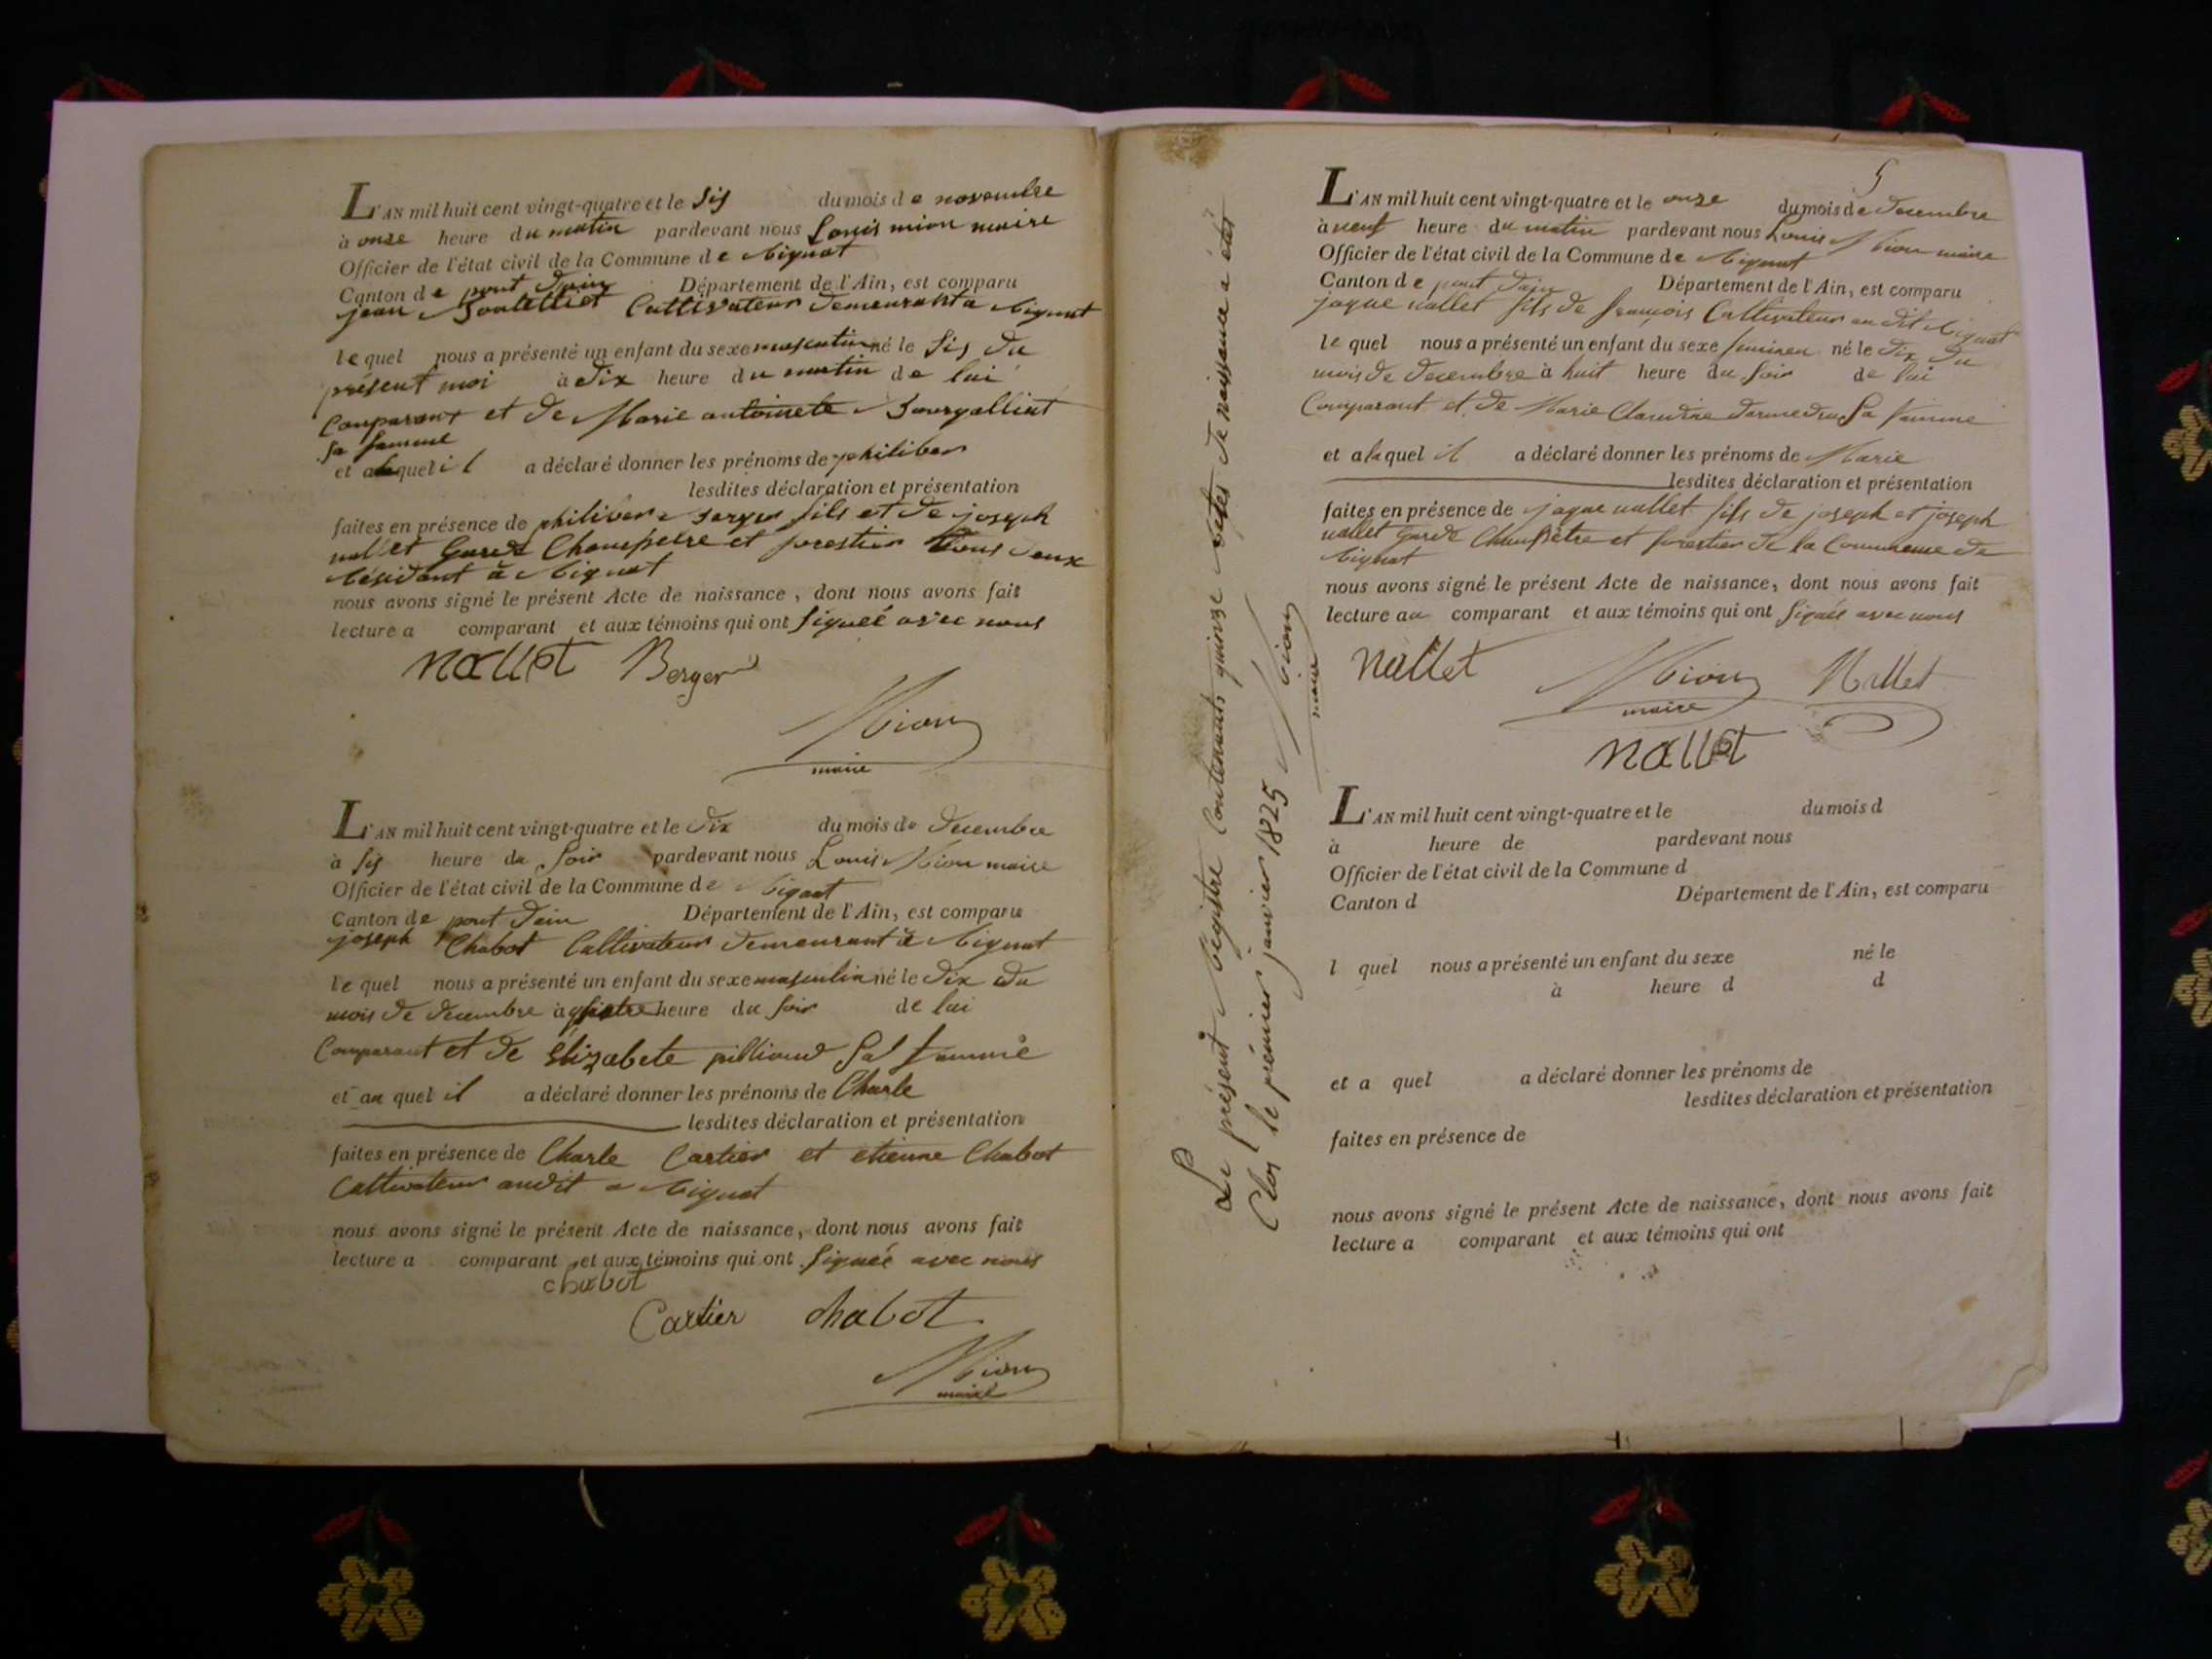 L'AN mil huit cent vingt-quatre et le sis du mois de novembre
à onse heure du matin pardevant nous Louis mion maire
Officier de l'état civil de la Commune de Rignat
Canton de pont dain Département de l'Ain, est comparu
jean Cultivateur demeurant a Rignat
le quel nous a présenté un enfant du sexe masculin né le sis du
présent moi à dix heure du matin de lui
Comparant et de Marie antoinete
sa famme
et a quel il a déclaré donner les prénoms de philiber
lesdites déclaration et présentation
faites en présence de philiber Berger fils et de joseph
nallet Garde Champetre et forestier tous deux
Résidant à Rignat
nous avons signé le présent Acte de naissance, dont nous avons fait
lecture a comparant et aux témoins qui ont signeé avec nous
nallet Berger
Mion
maire
L'AN mil huit cent vingt-quatre et le dix du mois de decembre
à sis heure du soir pardevant nous Louis Mion maire
Officier de l'état civil de la Commune de Rignat
Canton de pont dain Département de l'Ain, est comparu
joseph Chabot Cultivateur demeurant à Rignat
le quel nous a présenté un enfant du sexe masculin né le dix du
mois de decembre à quatre heure du soir de lui
Comparant et de Elizabete pillioud sa famme
et au quel il a déclaré donner les prénoms de Charle
lesdites déclaration et présentation
faites en présence de Charle Cartier et etienne Chabot
Cultivateur audit a Rignat
nous avons signé le présent Acte de naissance, dont nous avons fait
lecture a comparant et aux témoins qui ont signeé avec nous
chabot
Cartier chabot
Mion
maire
Le présent Registre Contenants quinse actes de naissance a étés
Clos le prémier janvier 1825 Mion
maire
5
L'AN mil huit cent vingt-quatre et le onze du mois de decembre
à neuf heure du matin pardevant nous Louis Mion maire
Officier de l'état civil de la Commune de Rignat
Canton de pont dain Département de l'Ain, est comparu
jaque nallet fils de françois Cultivateur au dit Rignat
le quel nous a présenté un enfant du sexe feminen né le dix du
mois de decembre à huit heure du soir de lui
Comparant et de Marie Claudine sa famme
et a la quel il a déclaré donner les prénoms de Marie
lesdites déclaration et présentation
faites en présence de jaque nallet fils de joseph et joseph
nallet garde Champètre et forestier de la Commune de
Rignat
nous avons signé le présent Acte de naissance, dont nous avons fait
lecture au comparant et aux témoins qui ont signeé avec nous
nallet Mion Nallet
maire
nallet
L'AN mil huit cent vingt-quatre et le du mois d
à heure de pardevant nous
Officier de l'état civil de la Commune d
Canton d Département de l'Ain, est comparu
l quel nous a présenté un enfant du sexe né le
à heure d d
et a quel a déclaré donner les prénoms de
lesdites déclaration et présentation
faites en présence de
nous avons signé le présent Acte de naissance, dont nous avons fait
lecture a comparant et aux témoins qui ont